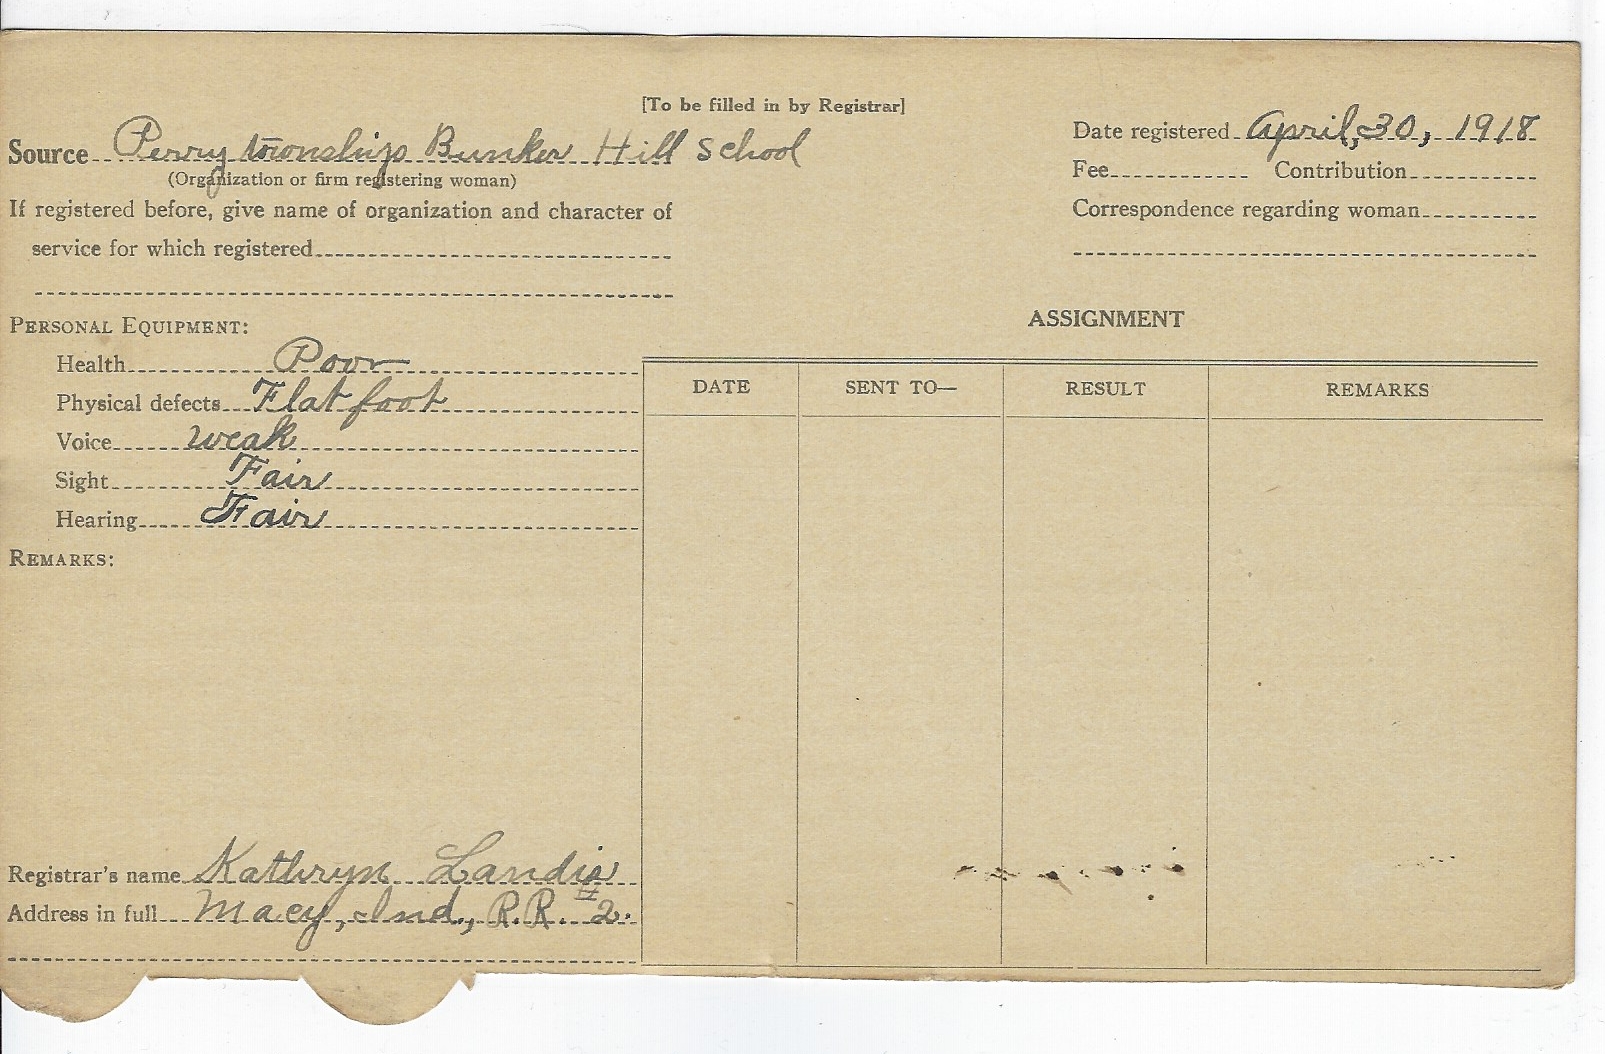 [To be filled in by Registrar]
Source Perry township Bunker Hill School
(Organization or firm registering woman)
If registered before, give name of organization and character of
service for which registered
Date registered April, 30, 1918
Fee Contribution
Correspondence regarding woman
PERSONAL EQUIPMENT:
Health Poor
Physical defects Flat foot
Voice weak
Sight Fair
Hearing Fair
REMARKS:
Registrar's name Kathryn Landis
Address in full Macy, Ind., R.R. #2.
ASSIGNMENT
DATE SENT TO— RESULT REMARKS